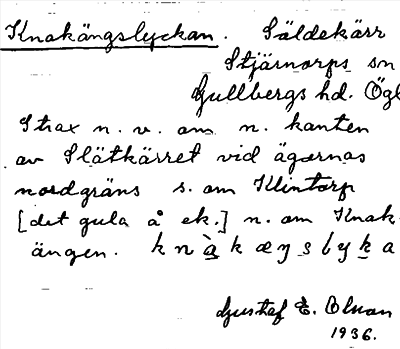 Knakängslyckan. Säldekärr
Stjärnorps sn
Gullbergs hd. Ögl
Strax n. v. om n. kanten
av Slätkärret vid ägornas
nordgräns s. om Klintorp
[det gula å ek.] n. om Knak-
ängen. knàkæŋslyka
Gustaf E. Olsson
1936.